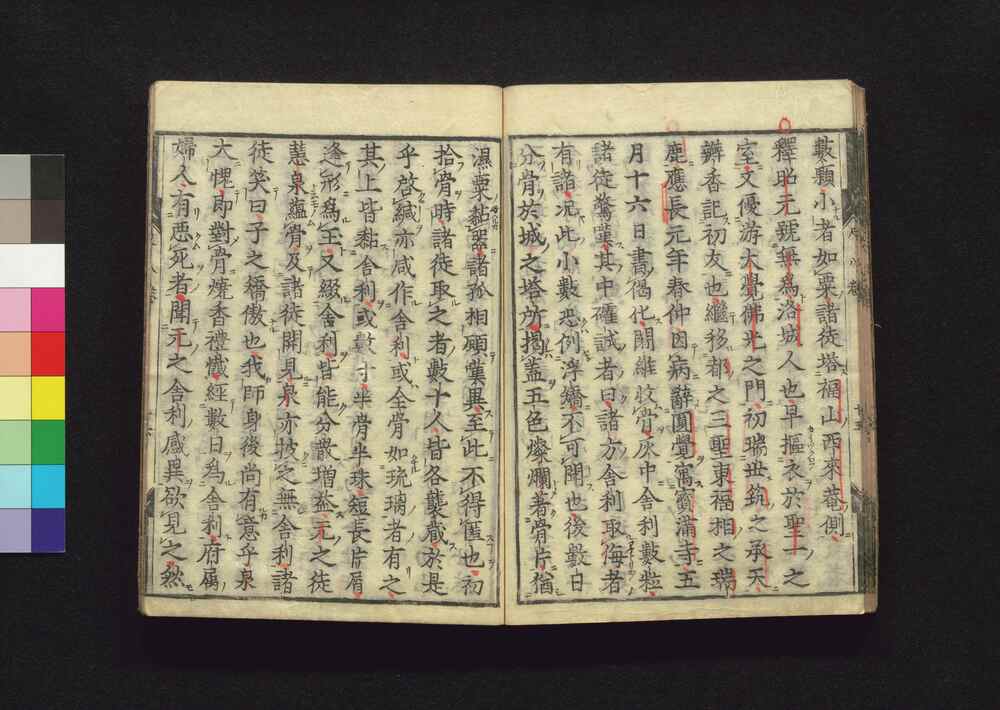 數顆小者如粟諸徒塔福山西來菴側
釋昭元號無爲洛城人也早摳衣於聖一之
室文優游大覺佛光之門初瑞世筑之承天
瓣香記初友也繼移都之三聖東福相之瑞
鹿應長元年春仲因病辭圓覺寓寶滿寺五
月十六日書偈化闍維收骨灰中舍利數粒
諸徒驚嘆其中礭誠者曰諸方舍利取侮者
有諸况此小數恐例浮矯不可聞也後數日
分骨於城之塔所揭蓋五色燦爛著骨片猶
濕粟黏器諸孫相顧葉異至此不得匿也初
拾骨時諸徒取之者數十人皆各襲藏於是
乎啓緘亦咸作舍利或全骨如琉璃者有之
其上皆黏舍利或數寸半骨半珠短長片屑
逢形爲玉又綴舍利皆能分散增益元之徒
慧泉蘊骨及諸徒開見泉亦披之無舍利諸
徒笑曰子之穚傲也我師身後尚有意乎泉
大愧即對骨燒香禮懺經數日爲舍利府属
婦人有惡死者聞元之舍利感異欲見之然